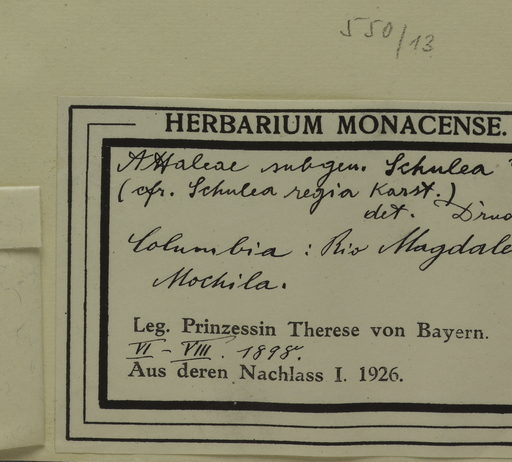 550/13
HERBARIUM MONACENSE.
Attaleae subgen. Schulea
(cfr. Schulea regia Karst.)
det. Drud
Columbia : Rio Magdale
Mochila.
Leg. Prinzessin Therese von Bayern.
VI - VIII. 1898.
Aus deren Nachlass I. 1926.